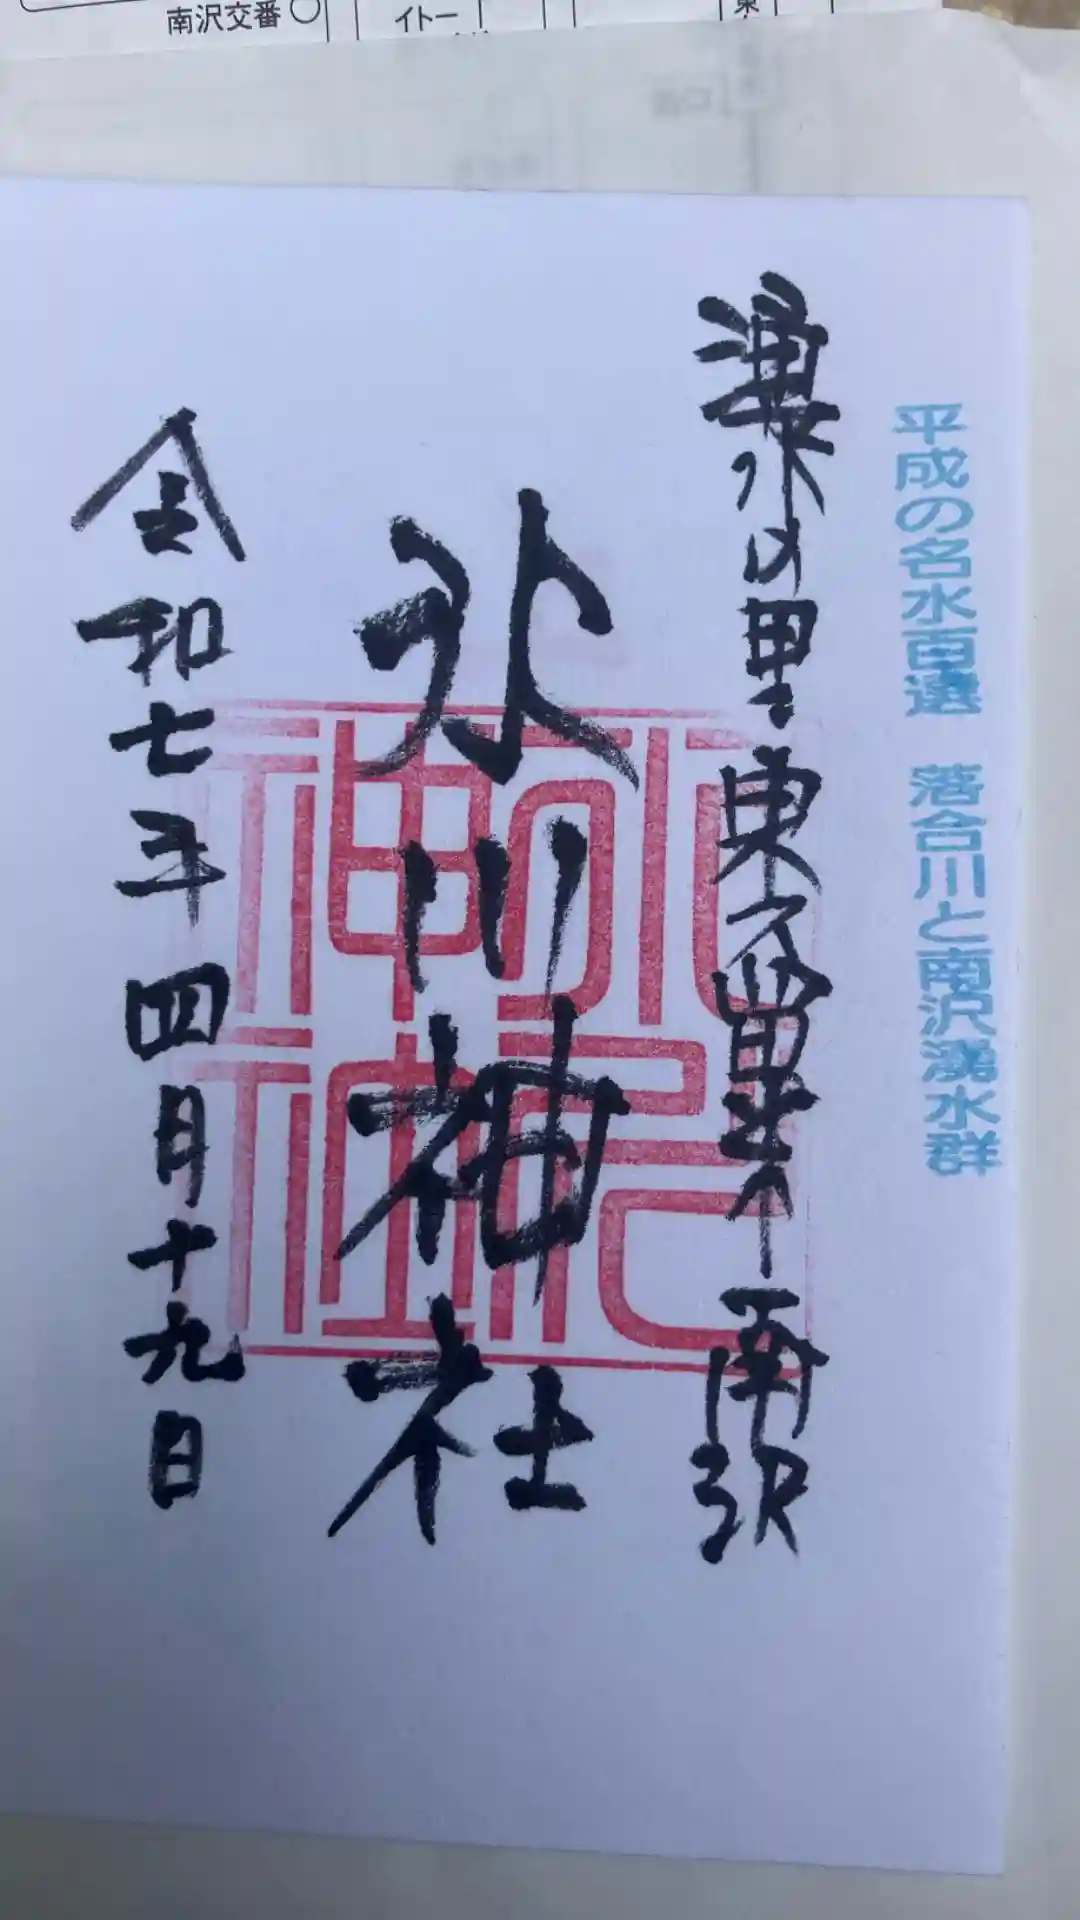 南沢交番
イトー
東
平成の名水百選 落合川と南沢湧水群
湧水の里東久留米市南沢
氷川神社
令和七年四月十九日